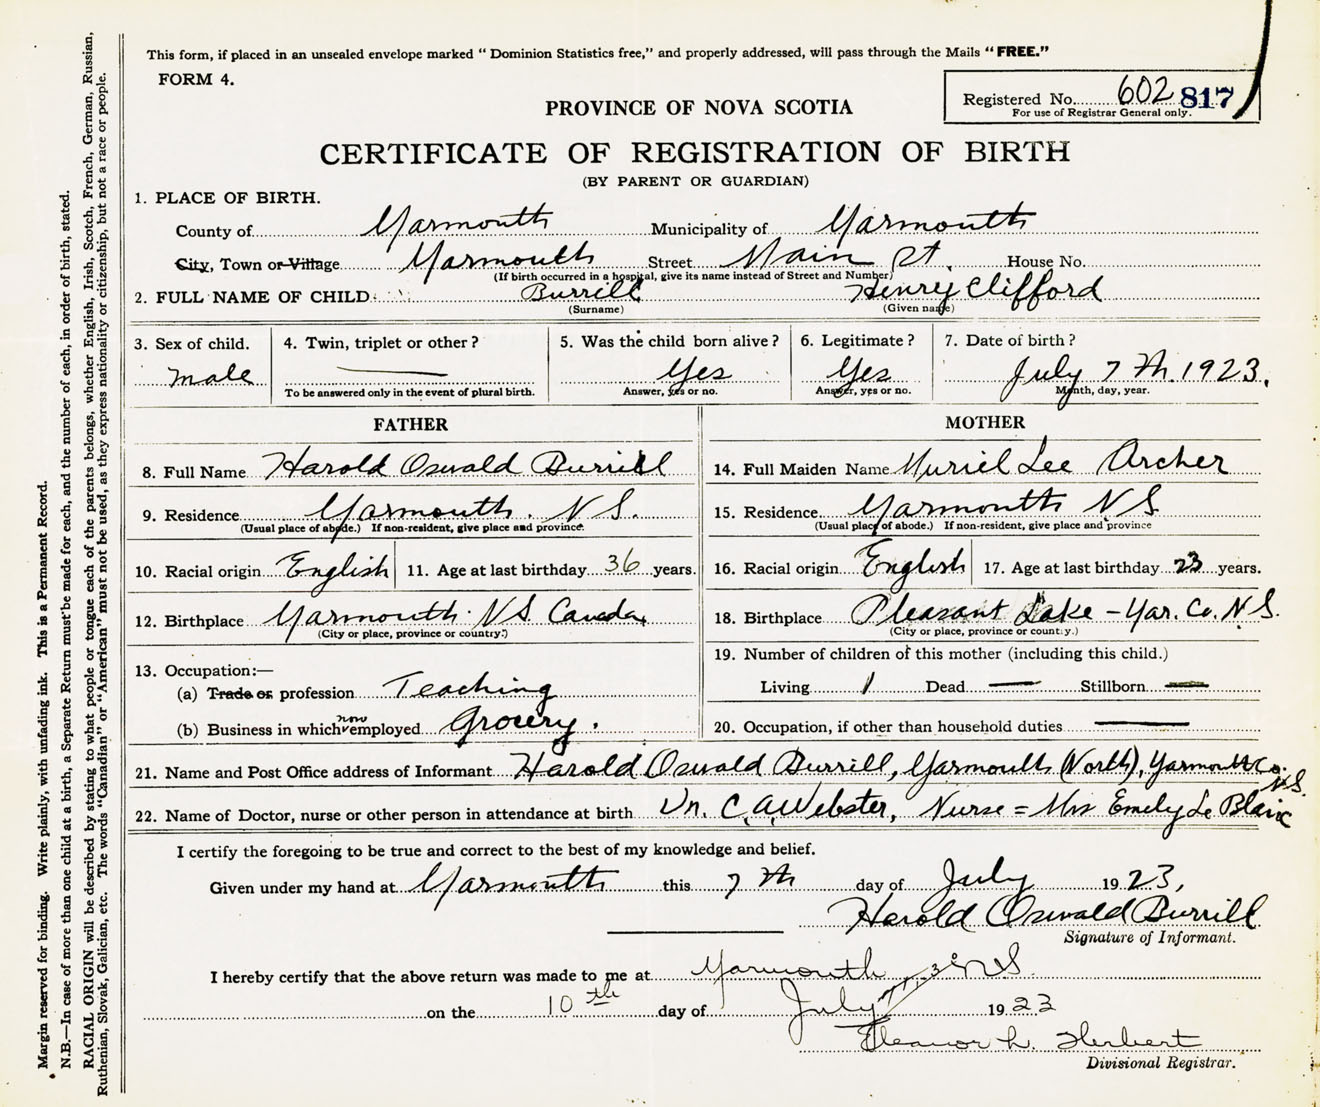 This form, if placed in an unsealed envelope marked "Dominion Statistics free," and properly addressed, will pass through the Mails "FREE."
FORM 4.
Registered No. 602 817
For use of Registrar General only.
PROVINCE OF NOVA SCOTIA
CERTIFICATE OF REGISTRATION OF BIRTH
(BY PARENT OR GUARDIAN)
1. PLACE OF BIRTH.
County of Yarmouth Municipality of Yarmouth
City, Town or Village Yarmouth Street Main St. House No.
(If birth occurred in a hospital, give its name instead of Street and Number)
2. FULL NAME OF CHILD Burrill Henry Clifford
(Surname) (Given name)
3. Sex of child. 4. Twin, triplet or other? 5. Was the child born alive? 6. Legitimate? 7. Date of birth?
male Yes Yes July 7th. 1923.
To be answered only in the event of plural birth. Answer, yes or no. Answer, yes or no. Month, day, year.
FATHER MOTHER
8. Full Name Harold Oswald Burrill 14. Full Maiden Name Muriel Lee Archer
9. Residence Yarmouth. N S. 15. Residence Yarmouth N S
(Usual place of abode.) If non-resident, give place and province. (Usual place of abode.) If non-resident, give place and province
10. Racial origin English 11. Age at last birthday 36 years. 16. Racial origin English 17. Age at last birthday 23 years.
12. Birthplace Yarmouth N S. Canada 18. Birthplace Pleasant Lake - Yar. Co. N S.
(City or place, province or country.) (City or place, province or country.)
13. Occupation:— 19. Number of children of this mother (including this child.)
(a) Trade or profession Teaching Living 1 Dead — Stillborn —
(b) Business in which now employed Grocery. 20. Occupation, if other than household duties —
21. Name and Post Office address of Informant Harold Oswald Burrill, Yarmouth (North), Yarmouth Co. N.S.
22. Name of Doctor, nurse or other person in attendance at birth Dr. C. A Webster, Nurse = Mrs Emely Le Blanc
I certify the foregoing to be true and correct to the best of my knowledge and belief.
Given under my hand at Yarmouth this 7th day of July 1923,
Harold Oswald Burrill
Signature of Informant.
I hereby certify that the above return was made to me at Yarmouth N S.
on the 10th day of July 1923
Eleanor L. Herbert
Divisional Registrar.
Margin reserved for binding. Write plainly, with unfading ink. This is a Permanent Record.
N.B.—In case of more than one child at a birth, a Separate Return must be made for each, and the number of each, in order of birth, stated.
RACIAL ORIGIN will be described by stating to what people or tongue each of the parents belongs, whether English, Irish, Scotch, French, German, Russian,
Ruthenian, Slovak, Galician, etc. The words "Canadian" or "American" must not be used, as they express nationality or citizenship, but not a race or people.